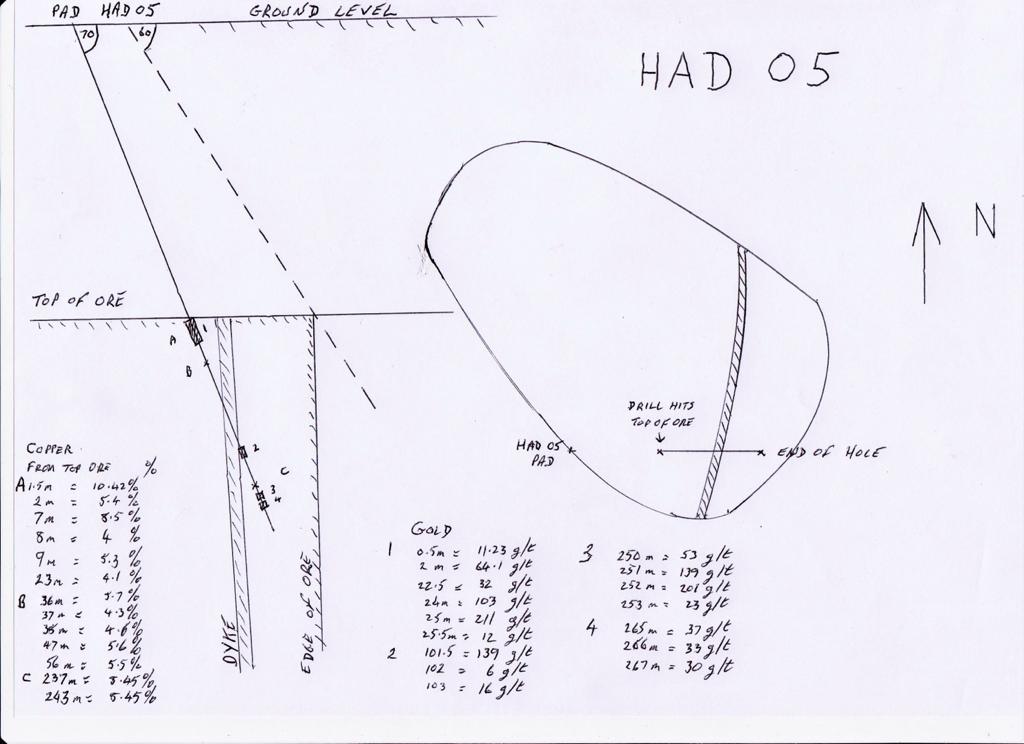 PAD HAD 05 GROUND LEVEL
70 60
HAD 05
N
TOP OF ORE
A
B
2
C
3
4
DYKE
EDGE OF ORE
DRILL HITS
TOP OF ORE
HAD 05
PAD
END OF HOLE
COPPER
FROM TOP ORE %
A 1.5m = 10.42%
2m = 5.4%
7m = 8.5%
8m = 4 %
9m = 5.3 %
23m = 4.1 %
B 36m = 5.7%
37m = 4.3%
= 4.6%
47m = 5.6%
56m = 5.5%
C 237m = 8.45%
243m = 8.45%
GOLD
1 0.5m = 11.23 g/t
2 m = 64.1 g/t
22.5 = 32 g/t
24m = 103 g/t
25m = 211 g/t
25.5m = 12 g/t
2 101.5 = 139 g/t
102 = 6 g/t
103 = 16 g/t
3 250m = 53 g/t
251m = 139 g/t
252m = 201 g/t
253m = 23 g/t
4 265m = 37 g/t
266m = 33 g/t
267m = 30 g/t